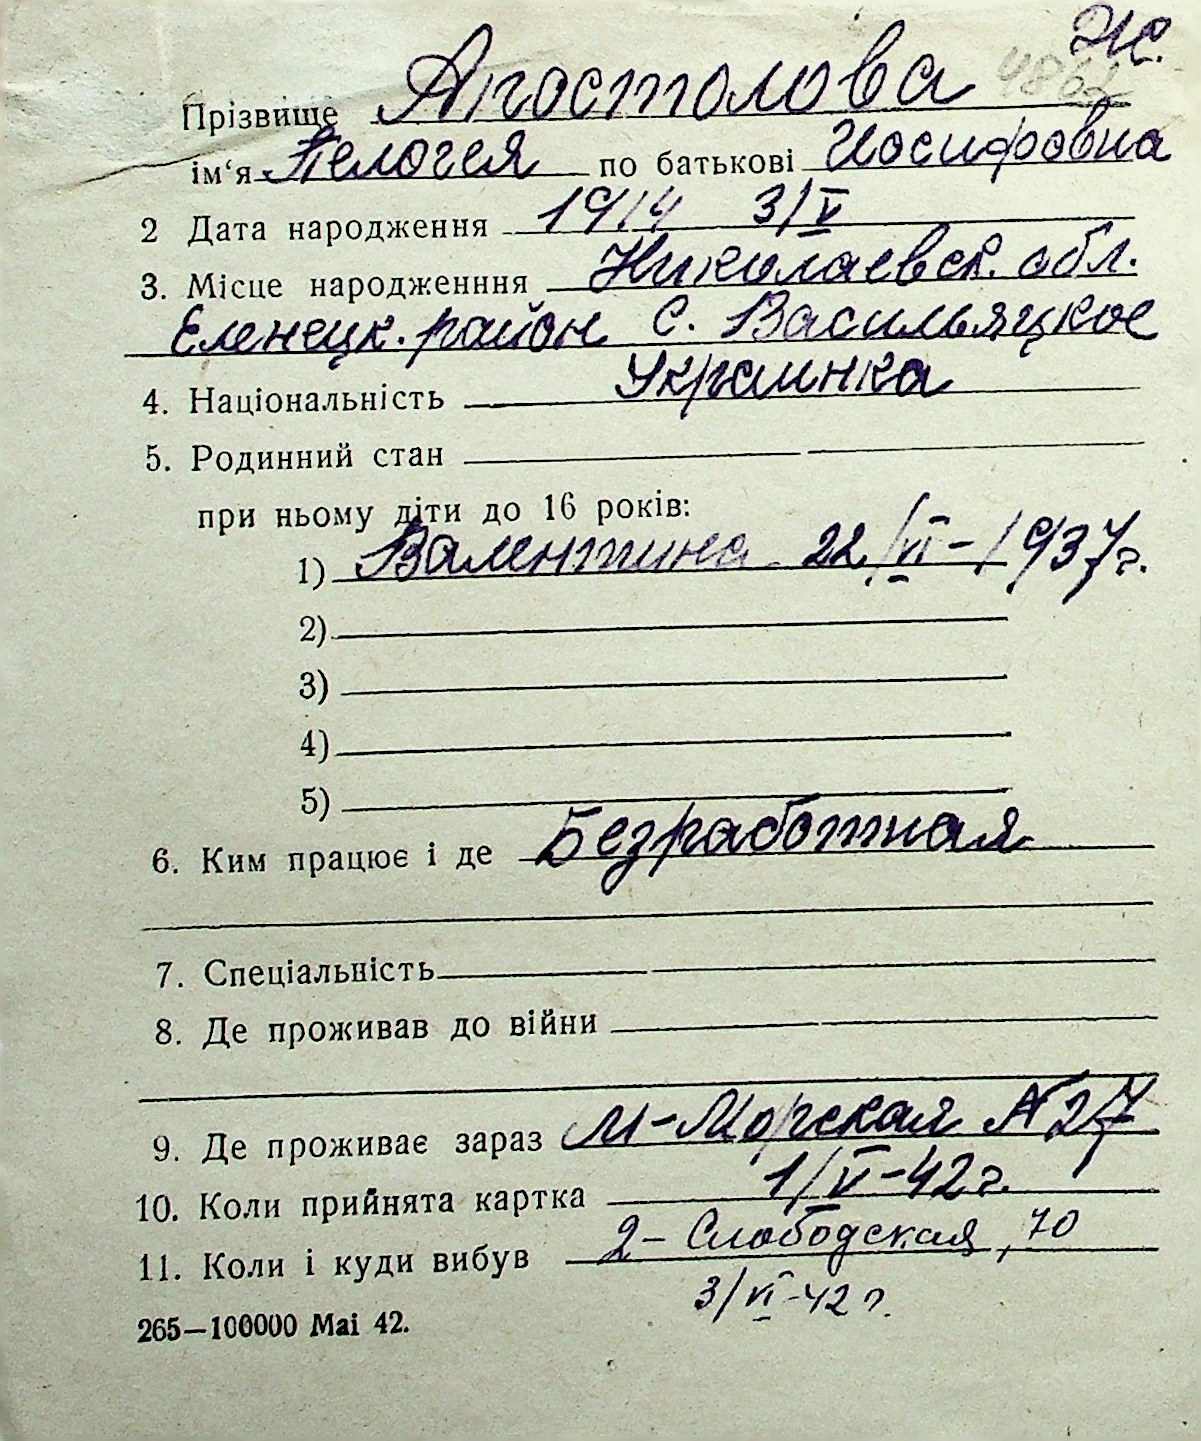 Ж.
4862
Прізвище Апостолова
ім‘я Пелогея по батькові Иосифовна
2 Дата народження 1914 3/V
3. Місце народженння Николаевск. обл.
Еленецк. район с. Васильяцкое
4. Національність Украинка
5. Родинний стан
при ньому діти до 16 років:
1) Валентина 22/VI-1937 г.
2)
3)
4)
5)
6. Ким працює і де Безработная
7. Спеціальність
8. Де проживав до війни
9. Де проживає зараз М-Морская №27
10. Коли прийнята картка 1/V-42 г.
11. Коли і куди вибув 2-Слободская, 70
3/VI-42 г.
265—100000 Mai 42.